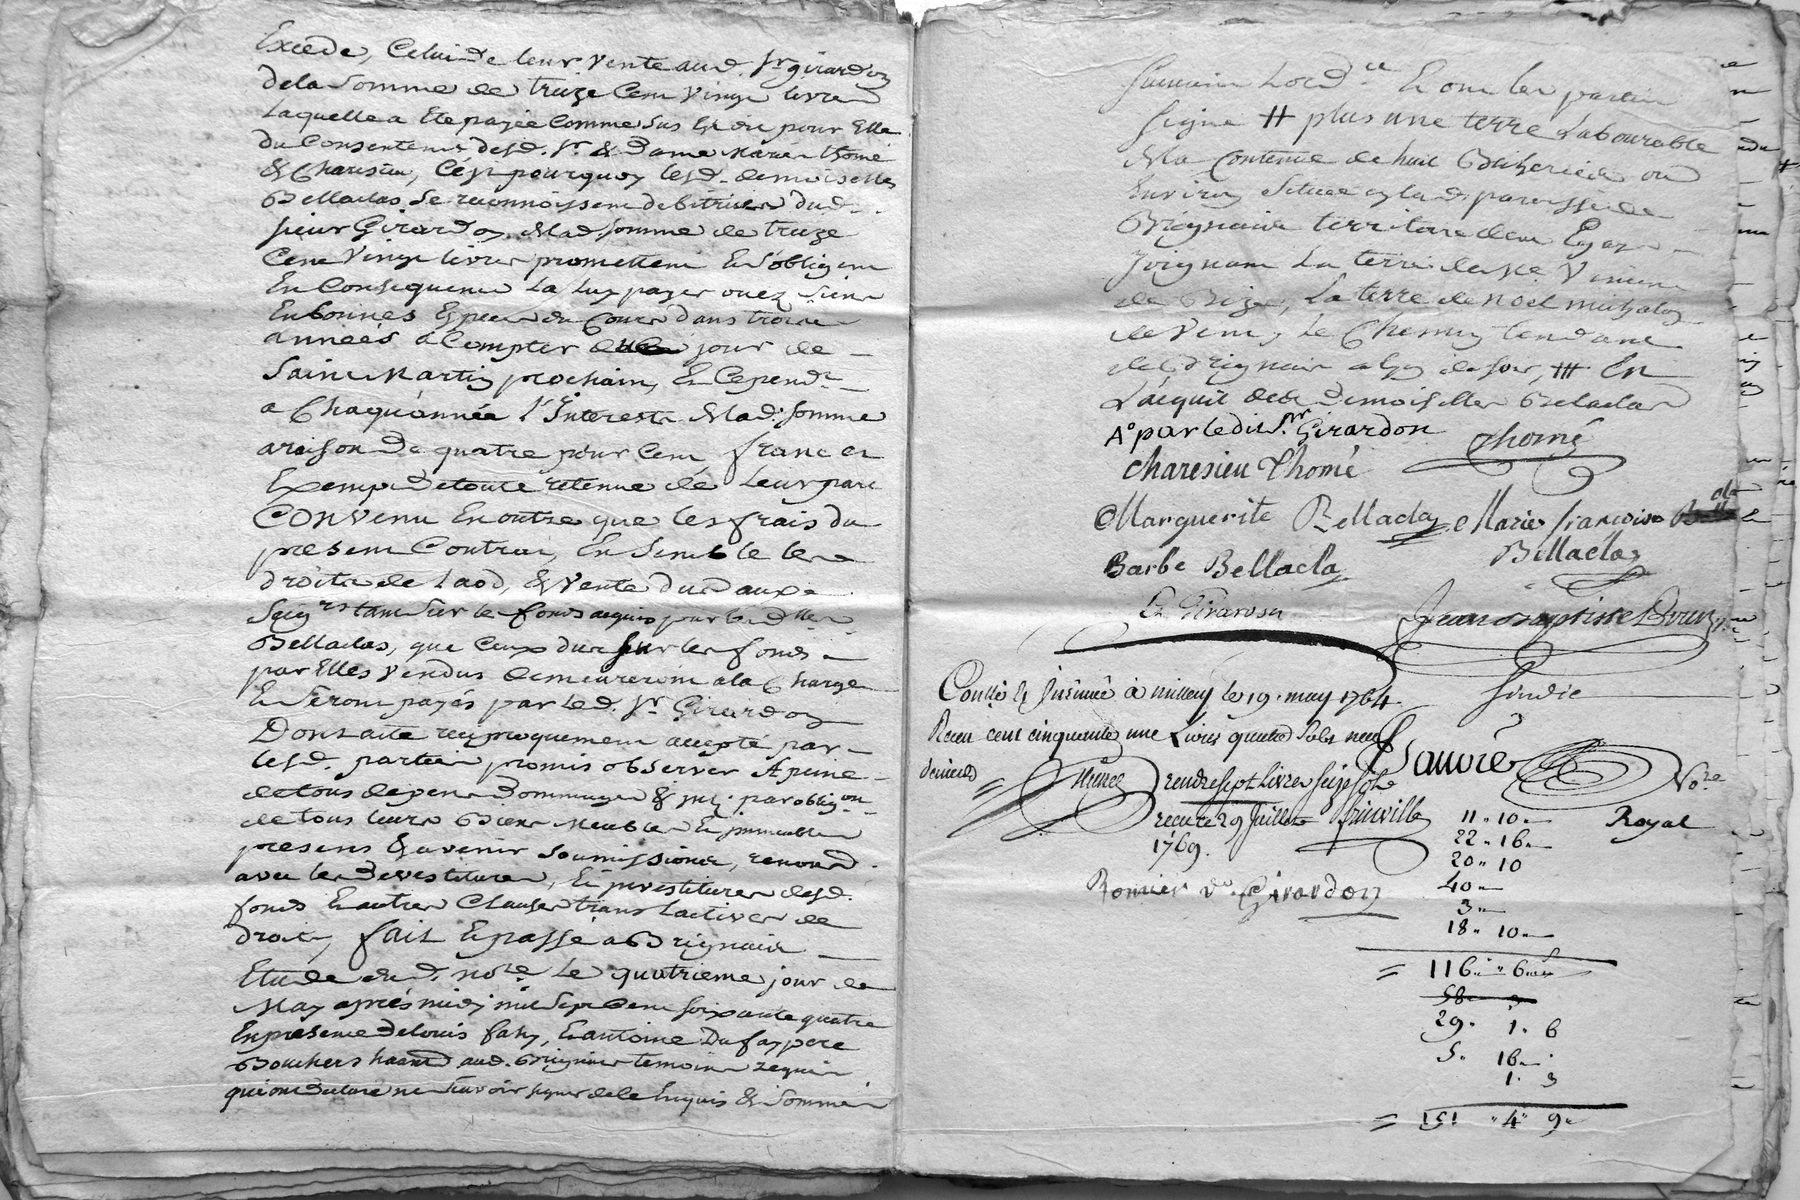 Excede, Celui de leur Vente aud. Sr. girardon
de la Somme de treize Cent Vingt livres
Laquelle a Eté payée Comme Sus Est dit pour Elle
du Consentemt desd. Sr. & Dame Marie thomé
& Charesieu, C'est pourquoy lesd. demoiselles
Bellaclas Se reconnoissent debitrices dud.
sieur Girardon de lad. Somme de treize
Cent Vingt livres promettent Et s'obligent
En Consequence La luy payer avec Siens
En bonnes Especes du Cours dans trois
années a Compter du jour de
Saint Martin prochain, Et Cepend.t
a Chaqu'année l'Interest de lad. Somme
a raison de quatre pour Cent franc et
Exempt de toute retenue de Leur part
Convenu En outre que les frais du
present Contrat, Ensemble les
droits de Laod, & Vente dus aux
Seigrs tant Sur le fonds acquis par lesd. dlles
Bellaclas, que Ceux dus sur les fonds
par Elles Vendus demeureront a la Charge
Et Seront payés par led. Sr Girardon
Dont acte reciproquement accepté par
lesd. parties promis observer A peine
de tous depens dommages & int. par oblig.on
de tous leurs Biens Meubles Et immeubles
presens & avenir Soumissions, renond.
avec les devestitures, Et investitures desd.
fonds Et autres Clauses translatives de
droits, fait Et passé a Brignais
Etude dud. nore Le quatrieme jour de
May après midi mil Sept Cent soixante quatre
En presence de Louis fahy, Et antoine Dufay pere
Bouchers haants aud. Brignais temoins requis
qui ont declaré ne Savoir signer de ce Enquis & Sommés
Suivant Lord.ce Et ont les parties
Signé # plus une terre Labourable
de la Contenue de huit Bicherées ou
Environ Située en lad. paroisse de
Brignais territoire des
joignant La terre de Vincent
de Bize, La terre de noel
de Vent, Le Chemin tendant
de Brignais a de soir, ## En
L'acquit desd. demoiselles Bellaclas
A° par ledit Sr. Girardon
Thomé
charesieu Thomé
Marguerite Bellacla Marie françoise
Bellacla
Barbe Bellacla
Et Girardon
Jean Baptiste
sindic
Conllé & Insinué à millery le 19. may 1764.
Receu cent cinquante une Livres quatre Sols neuf
deniers
Sauvré
Nore
Royal
trende sept Livres seize sols
receu ce 29 Juillet
1769.
Romier ve Girardon
11 " 10 "
22 " 16 "
20 " 10
40 "
3 "
18 " 10 "
= 116 " " 6
58
29 " 1 " 6
5 " 16 "
1 " 3
= 151 " 4 " 9